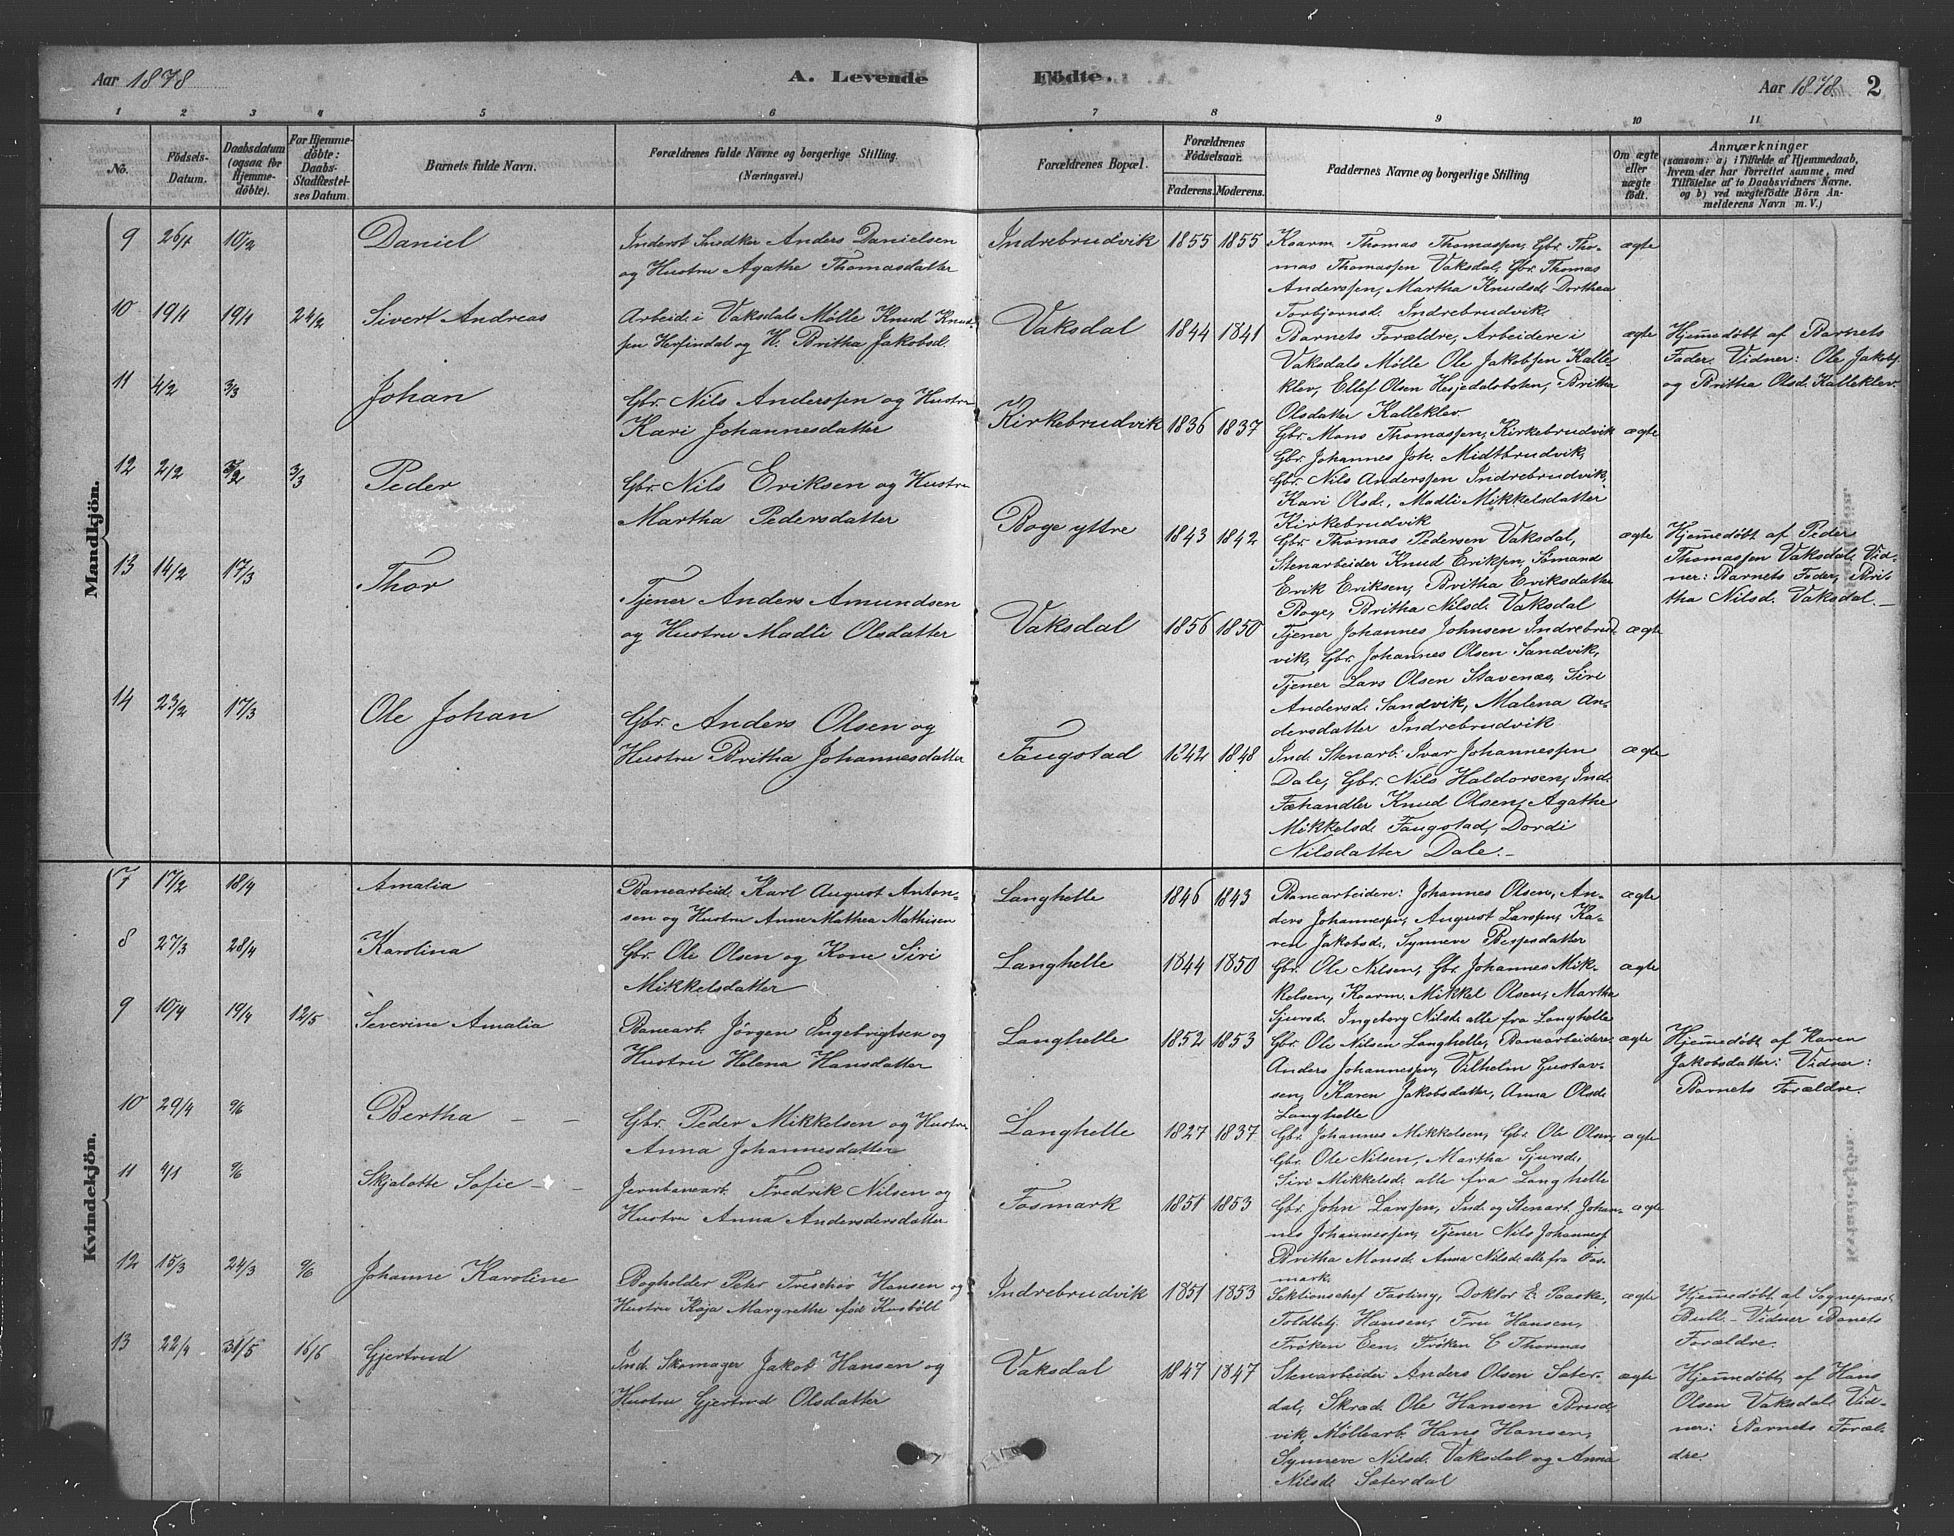 Aar 1878
A. Levende
Födte.
Aar 1878.
2
1 2 3 4 5 6 7 8 9 10 11
No.
Födsels-
Datum.
Daabsdatum
(ogsaa for
Hjemme-
döbte).
For Hjemme-
döbte:
Daabs-
Stadfæstel-
ses Datum.
Barnets fulde Navn.
Forældrenes fulde Navne og borgerlige Stilling.
(Næringsvei.)
Forældrenes Bopæl.
Forældrenes
Födselsaar.
Faderens. Moderens.
Faddernes Navne og borgerlige Stilling
Om ægte
eller
uægte
födt.
Anmærkninger
(saasom: a) i Tilfælde af Hjemmedaab,
hvem der har forrettet samme, med
Tilföielse af to Daabsvidners Navne,
og b) ved uægtefödte Börn An-
melderens Navn m. V.)
Mandkjön.
9 26/1 10/2 Daniel
Inderst Snedker Anders Danielsen
og Hustru Agathe Thomasdatter
Indrebrudvik 1855 1855
Kaarm. Thomas Thomassen, Gbr. Tho-
mas Thomassen Vaksdal, Gbr. Thomas
Anderssen, Martha Knudsd. Dorthea
Torbjørnsd. Indrebrudvik
ægte
10 19/1 19/1 24/2 Sivert Andreas
Arbeid. i Vaksdals Mølle Knud Knud-
sen Herfindal og H. Britha Jakobsd.
Vaksdal 1844 1841
Barnets Forældre, Arbeidere i
Vaksdals Mølle Ole Jakobsen Kalle-
klev, Ellef Olsen Hesjedalsboten, Britha
Olsdatter Kalleklev
ægte
Hjemmedøbt af Barnets
Fader. Vidner: Ole Jakobs.
og Britha Olsd. Kalleklev.
11 4/2 3/3 Johan
Gbr. Nils Anderssen og Hustru
Kari Johannesdatter
Kirkebrudvik 1836 1837
Gbr. Mons Thomassen, Kirkebrudvik
Gbr. Johannes Joh. Midtbrudvik,
Gbr. Nils Anderssen Indrebrudvik,
Kari Olsd., Madli Mikkelsdatter
Kirkebrudvik
ægte
12 2/2 3/2 3/3 Peder
Gbr. Nils Eriksen og Hustru
Martha Pedersdatter
Boge yttre 1843 1842
Gbr. Thomas Pedersen Vaksdal,
Stenarbeider Knud Eriksen, Sömand
Erik Eriksen, Britha Eriksdatter
Boge, Britha Nilsd. Vaksdal
ægte
Hjemmedøbt af Peder
Thomassen Vaksdal. Vid-
ner: Barnets Fader, Bri-
tha Nilsd. Vaksdal.
13 14/2 17/3 Thor
Tjener Anders Amundsen
og Hustru Madli Olsdatter
Vaksdal 1856 1850
Tjener Johannes Johnsen Indrebrud-
vik, Gbr. Johannes Olsen Sandvik,
Tjener Lars Olsen Stavenæs, Siri
Andersd. Sandvik, Malena An-
dersdatter Indrebrudvik
ægte
14 23/2 17/3 Ole Johan
Gbr. Anders Olsen og
Hustru Britha Johannesdatter
Faugstad 1842 1848
Ind. Stenarb. Ivar Johannessen
Dale, Gbr. Nils Haldorsen, Ind.
Fæhandler Knud Olsen, Agathe
Mikkelsd. Faugstad, Dordi
Nilsdatter Dale.
ægte
Kvindekjön.
7 17/2 18/4 Amalia
Banearbeid. Karl August Anton-
sen og Hustru Anne Mathea Mathisen
Langhelle 1846 1843
Banearbeidere: Johannes Olsen, An-
ders Johannessen, August Larssen, Ka-
ren Jakobsd., Synneve Bespsdatter
ægte
8 27/3 28/4 Karolina
Gbr. Ole Olsen og Kone Siri
Mikkelsdatter
Langhelle 1844 1850
Gbr. Ole Nilsen, Gbr. Johannes Mik-
kelsen, Kaarm. Mikkel Olsen, Martha
Sjursd. Ingeborg Nilsd. alle fra Langhelle
ægte
9 10/4 19/4 12/5 Severine Amalia
Banearb. Jørgen Ingebrigtsen og
Hustru Helena Hansdatter
Langhelle 1852 1853
Gbr. Ole Nilsen Langhelle, Banearbeidere
Anders Johannessen, Vilhelm Gustav-
sen, Karen Jakobsdatter, Anna Olsd.
Langhelle
ægte
Hjemmedøbt af Karen
Jakobsdatter: Vidner:
Barnets Forældre.
10 29/4 9/6 Bertha
Gbr. Peder Mikkelsen og Hustru
Anna Johannesdatter
Langhelle 1827 1837
Gbr. Johannes Mikkelsen, Gbr. Ole Olsen,
Gbr. Ole Nilsen, Martha Sjursd.,
Siri Mikkelsd. alle fra Langhelle
ægte
11 4/1 9/6 Skjalotte Sofie
Jernbanearb. Fredrik Nilsen og
Hustru Anna Andersdersdatter
Fosmark 1851 1853
Gbr. John Larssen, Ind. og Stenarb. Johan-
nes Johannessen, Tjener Nils Johannes.
Britha Monsd. Anna Nilsd. alle fra Fos-
mark.
ægte
12 15/3 24/3 9/6 Johanne Karoline
Bogholder Peter Hansen og
Hustru Kaja Margrethe født Kusbölt
Indrebrudvik 1851 1853
Sektionschef Fasting, Doktor E. Paaske,
Toldbetj. Hansen, Fru Hansen,
Frøken Een, Frøken C Thormas
ægte
Hjemmedøbt af Sognepræst
Bull. Vidner Banets
Forældre.
13 22/4 31/5 16/6 Gjertrud
Ind. Skomager Jakob Hansen og
Hustru Gjertrud Olsdatter
Vaksdal 1847 1847
Stenarbeider Anders Olsen Sater-
dal, Skræd. Ole Hansen Brud-
vik, Møllearb. Hans Hansen,
Synneve Nilsd. Vaksdal og Anna
Nilsd. Saterdal
ægte
Hjemmedøbt af Hans
Olsen Vaksdal. Vid-
ner: Barnets Foræl-
dre.